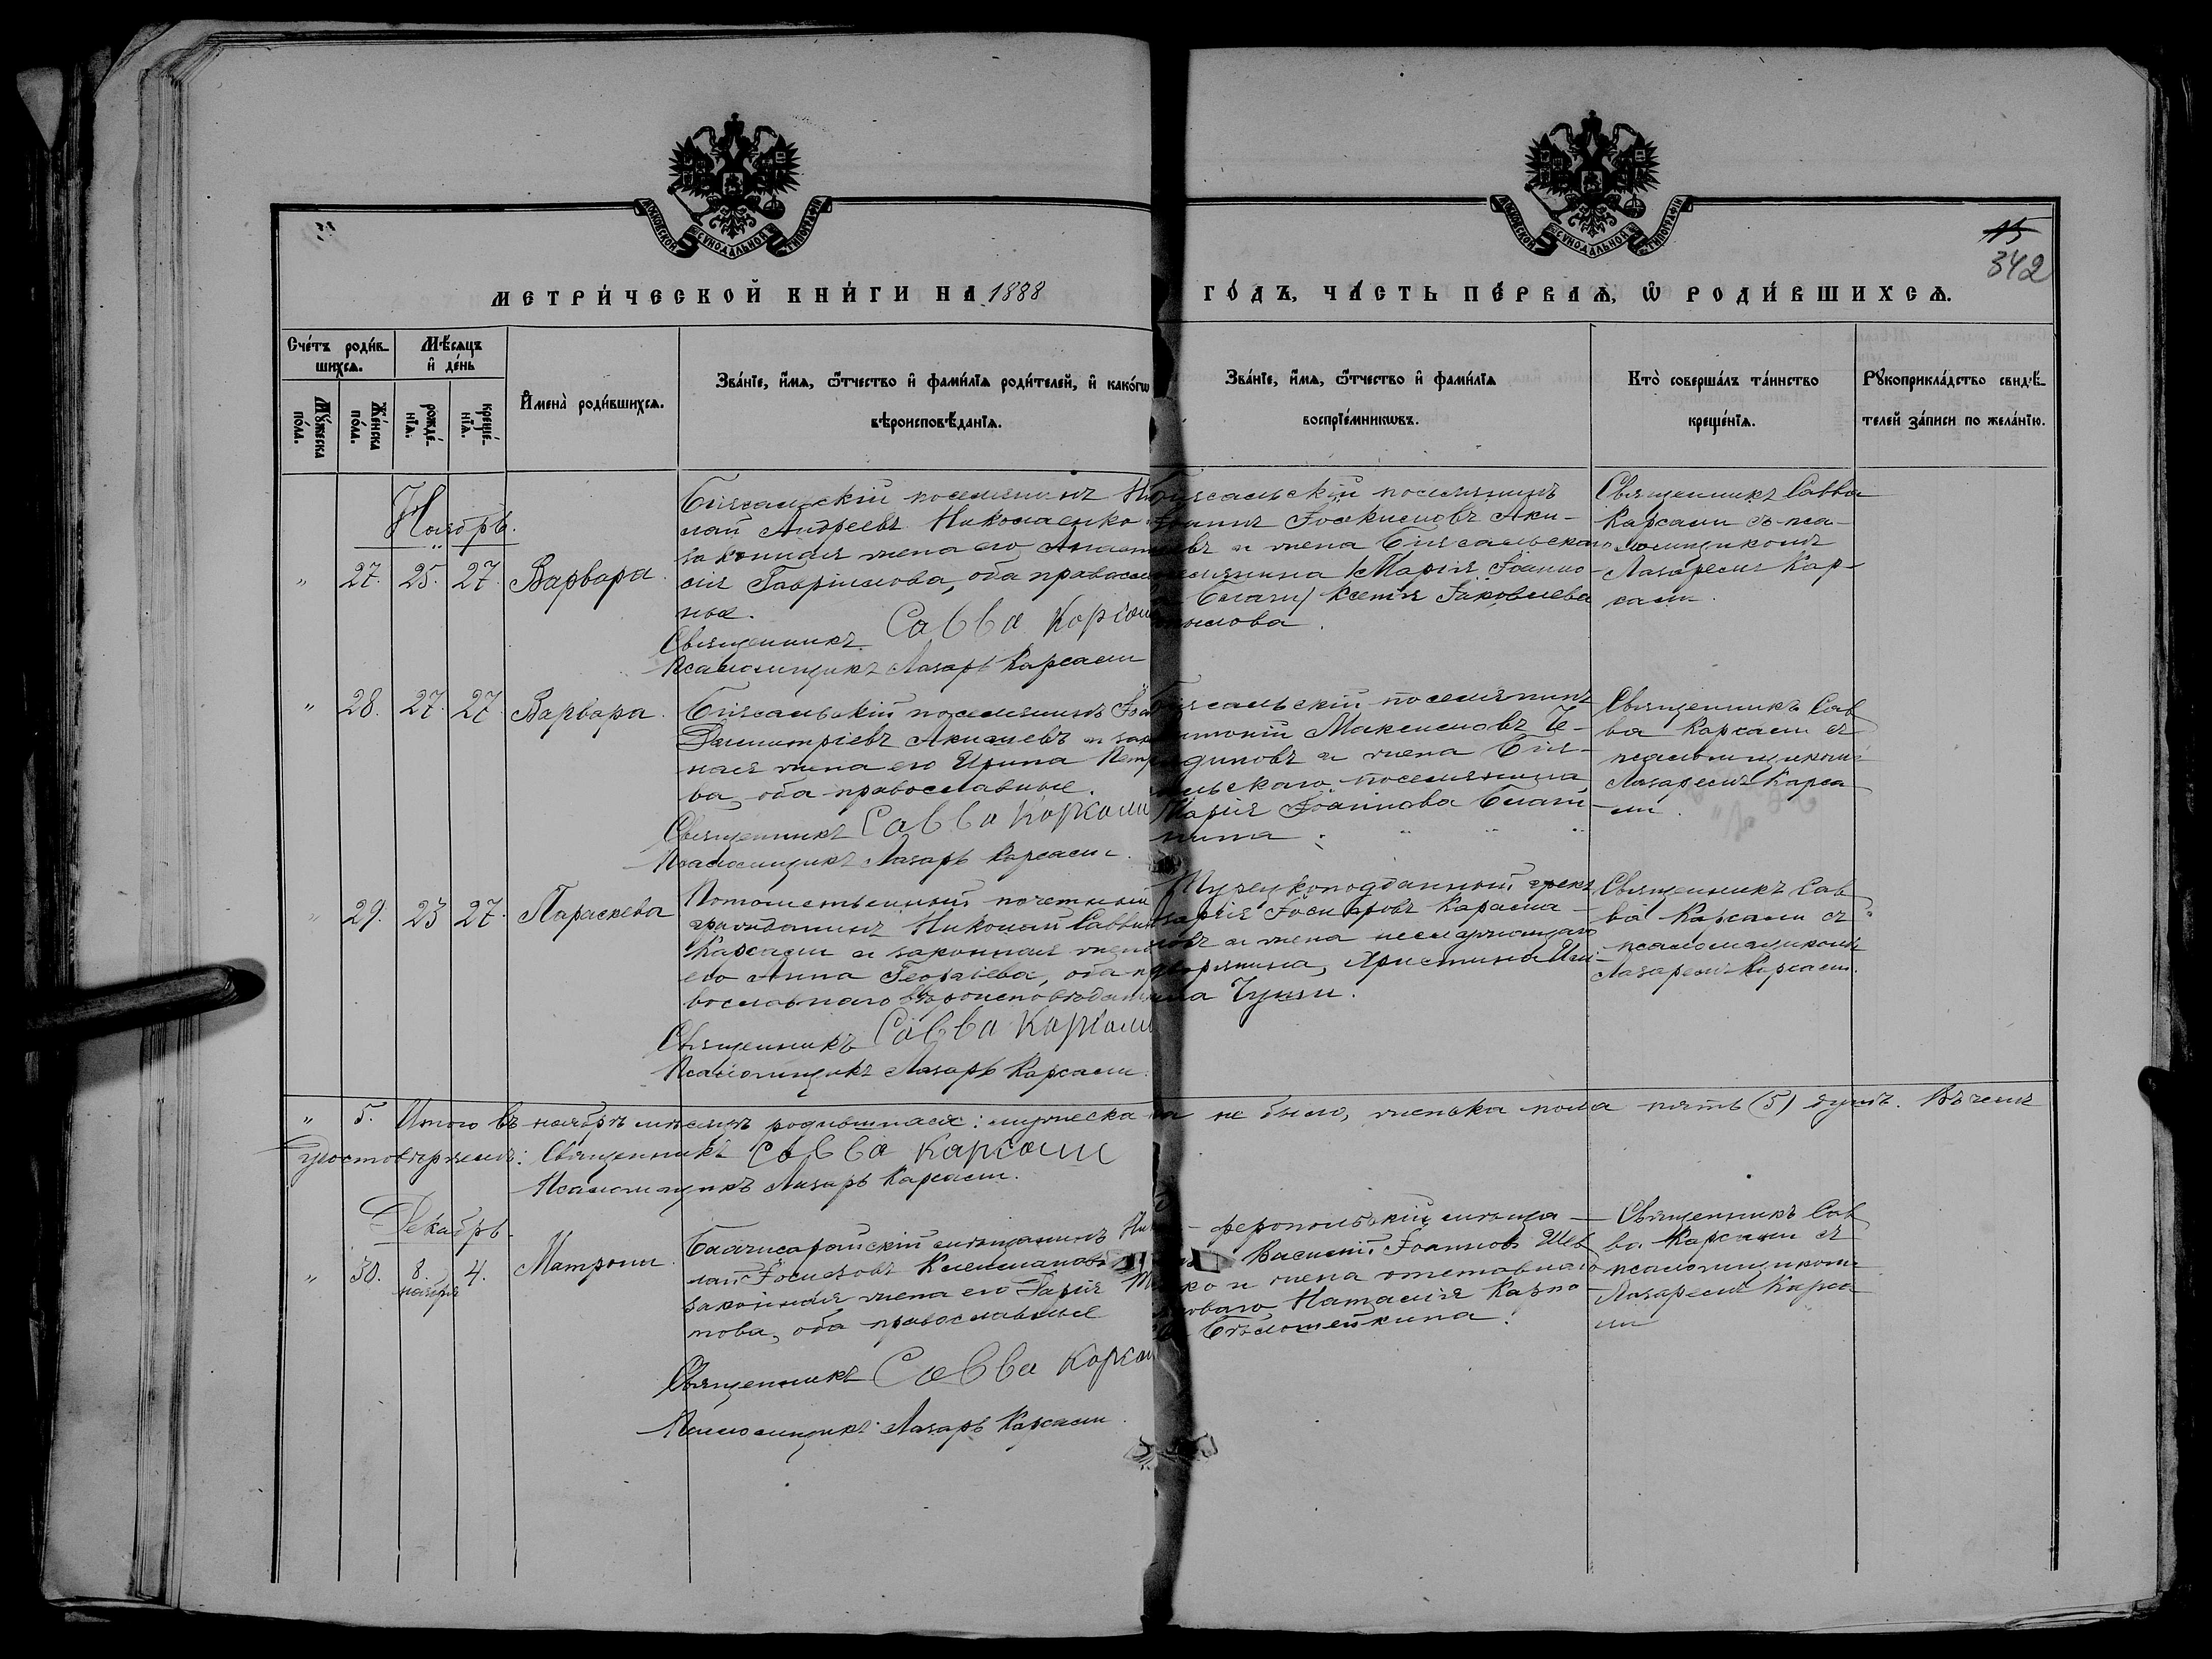 МОСКОВСКОЙ СѴНОДАЛЬНОЙ ТИПОГРАФІИ
МОСКОВСКОЙ СѴНОДАЛЬНОЙ ТИПОГРАФІИ
15
342
МЕТРИ́ЧЕСКОЙ КНИ́ГИ НА 1888
ГО́ДЪ, ЧА́СТЬ ПЕ́РВАѦ, Ѽ РОДИ́ВШИХСѦ.
Сче́тъ роди́в-
шихсѧ.
Мѣ́сѧцъ
и҆ де́нь
Мꙋ́жеска по́ла.
Же́нска по́ла.
рожде́-нїѧ.
креще́-нїѧ.
И҆мена̀ роди́вшихсѧ.
Зва́нїе, и҆́мѧ, ѻ҆́тчество и҆ фами́лїѧ роди́телей, и҆ како́гѡ
вѣроисповѣ́данїѧ.
Зва́нїе, и҆́мѧ, ѻ҆́тчество и҆ фами́лїѧ
воспрїе́мникѡвъ.
Кто̀ соверша́лъ та́инство
креще́нїѧ.
Рꙋкоприкла́дство свидѣ́-
телей за́писи по жела́нїю.
Ноябрь.
" 27. 25. 27. Варвара.
Біясальскій поселянинъ Ни
лай Андреевъ Николаенко
законная жена его Анаст
сія Гавриилова, оба правосла
ные.
Священникъ Савва Карсами
Псаломщикъ Лазарь Карсами
Біясальскій поселянинъ
Іоаннъ Іоакимовъ Аки-
евъ и жена Біясальска
поселянина Марія Іоанно
Ксенія Іаковлева
Священникъ Савва
Карсами съ пса-
ломщикомъ
Лазаремъ Кар-
сами.
" 28. 27. 27 Варвара.
Біясальскій поселянинъ
Димитріевъ Акишевъ и зак
ная жена его Ирина Петр
ва, оба православные.
Священникъ Савва Карсами
Псаломщикъ Лазарь Карсами.
Біясальскій поселянинъ
Антоній Максимовъ Че-
и жена Бія-
сальскаго поселянина
Марія Іоаннова
Священникъ Сав
ва Карсами съ
псаломщикомъ
Лазаремъ Карса
ми.
" 29. 23 27. Параскева
Потомственный почетный
гражданинъ Николай Саввин
Карсами и законная жена
его Анна Георгіева, оба пра
вославнаго вѣроисповѣдан
Священникъ Савва Карсами
Псаломщикъ Лазарь Карсами.
Турецкоподданный грекъ
и жена
дворянина, Христина
Священникъ Сав
ва Карсами съ
псаломщикомъ
Лазаремъ Карсами.
" 5. Итого въ ноябрѣ мѣсяцѣ родившихся: мужеска не было, женска пола пять (5) душъ. Въ чемъ
удостовѣряемъ: Священникъ Савва Карсами
Псаломщикъ Лазарь Карсами.
Декабрь.
" 30. 8. ноября 4. Матрона
Бахчисарайскій мѣщанинъ Ни
лай Іосифовъ
законная жена его Дарія
нова, оба православные
Священникъ Савва Карсам
Псаломщикъ Лазарь Карсами.
феропольскій мѣща-
Василій Іоанновъ Шев
ко и жена отставнаго
Наталія Карпо
Бѣлошейкина.
Священникъ Сав
ва Карсами съ
псаломщикомъ
Лазаремъ Карса
ми